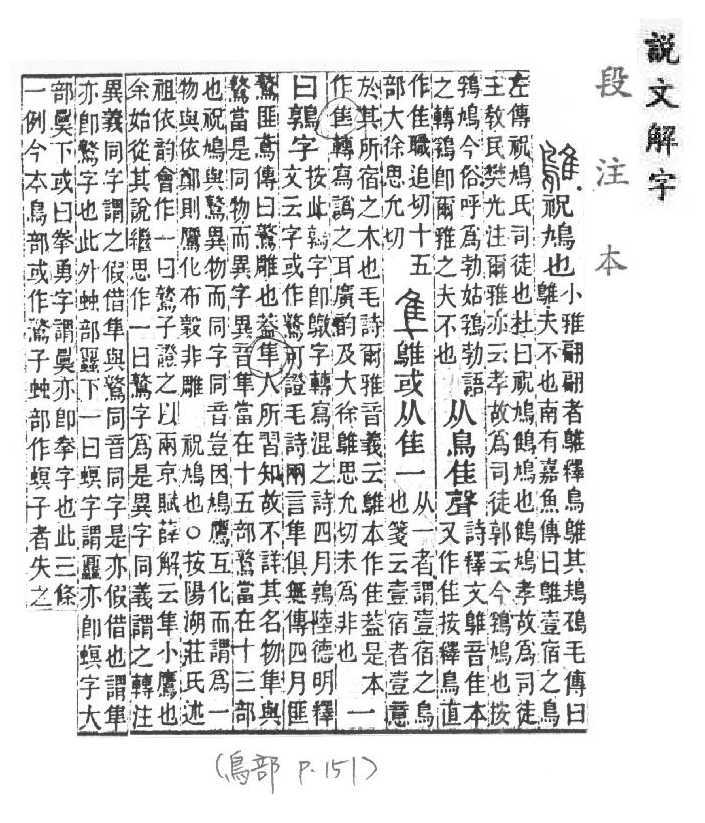 說文解字
段注本
鵻祝鳩也小雅翩翩者鵻釋鳥鵻其鳺鴀毛傳曰
鵻夫不也南有嘉魚傳曰鵻壹宿之鳥
左傳祝鳩氏司徒也杜曰祝鳩鷦鳩也鷦鳩孝故爲司徒
主敎民樊光注爾雅亦云孝故爲司徒郭云今鵓鳩也按
鵓鳩今俗呼爲勃姑鵓勃語
之轉鵓卽爾雅之夫不也
从鳥隹聲
詩釋文鵻音隹本
又作隹按釋鳥直
作隹職追切十五
部大徐思允切
隼鵻或从隹一
从一者謂壹宿之鳥
也箋云壹宿者壹意
於其所宿之木也毛詩爾雅音義云鵻本作隹葢是本
作隼轉寫譌之耳廣韵及大徐鵻思允切未爲非也 一
曰鶉字
按此鶉字卽鷻字轉寫混之詩四月鶉陸德明釋
文云字或作鷻可證毛詩兩言隼俱無傳四月匪
鷻匪鳶傳曰鷻雕也葢隼人所習知故不詳其名物隼與
鷻當是同物而異字異音隼當在十五部鷻當在十三部
也祝鳩與鷻異物而同字同音豈因鳩鷹互化而謂爲一
物與依鄭則鷹化布穀非雕 祝鳩也○按陽湖莊氏述
祖依韵會作一曰鷻子證之以兩京賦薛解云隼小鷹也
余始從其說繼思作一曰鷻字爲是異字同義謂之轉注
異義同字謂之假借隼與鷻同音同字是亦假借也謂隼
亦卽鷻字也此外䖵部𧕅下一曰螟字謂𧕅亦卽螟字大
部奰下或曰拳勇字謂奰亦卽拳字也此三條
一例今本鳥部或作鷻子䖵部作螟子者失之
(鳥部 P.151)